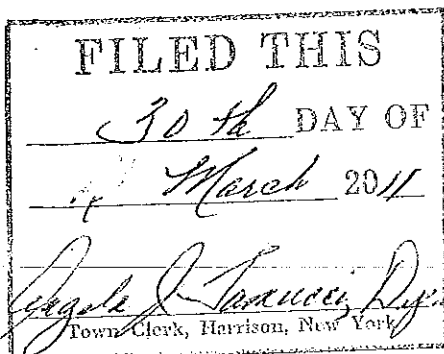 FILED THIS
30th DAY OF
March 2011
Angela
Town Clerk, Harrison, New York